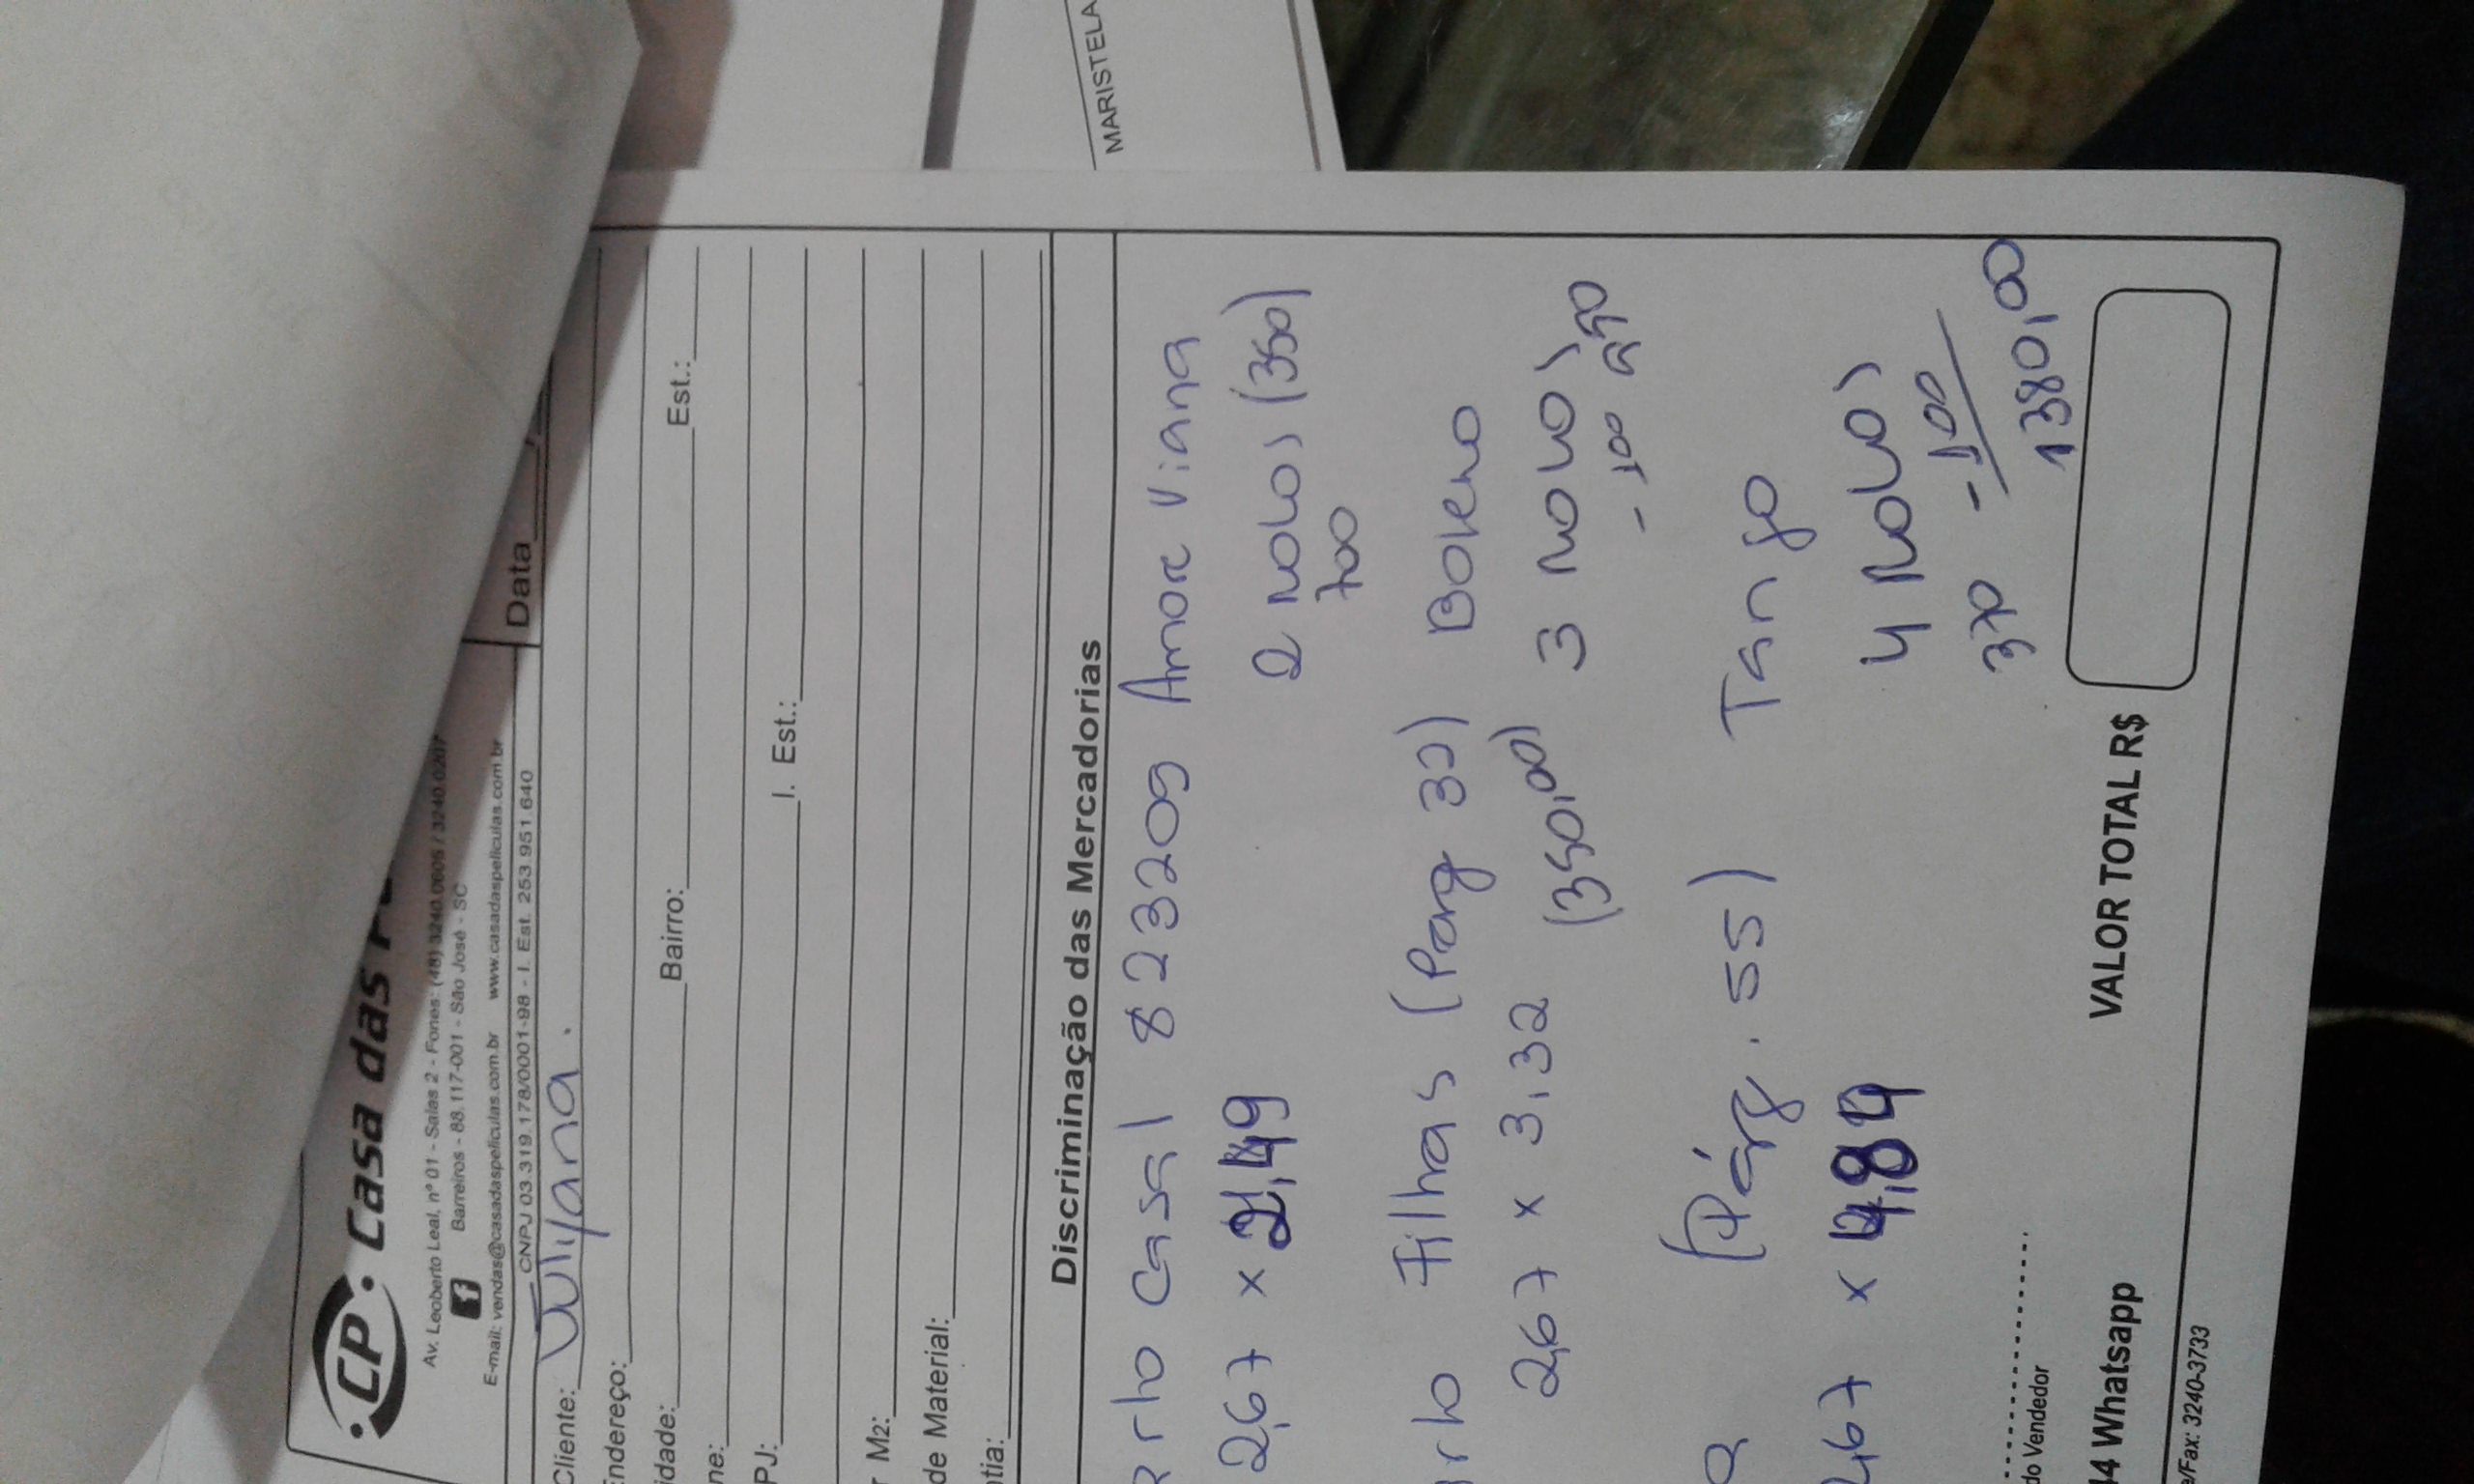 MARISTELA
CP Casa das
Av. Leoberto Leal, nº 01 - Salas 2 - Fones: (48) 3240.0605 / 3240.0207
Barreiros - 88.117-001 - São José - SC
E-mail: vendas@casadaspeliculas.com.br www.casadaspeliculas.com.br
CNPJ 03.319.178/0001-98 - I. Est. 253.951.640
Data
Cliente: Juliana.
Endereço:
idade: Bairro: Est.:
ne:
PJ: I. Est.:
M2:
de Material:
tia:
Discriminação das Mercadorias
rto Casal 823209 Amore Viana
2,67 x 2,49 2 rolos (350)
700
rto Filhas (Parg 32) Boleno
2,67 x 3,32 (350,00) 3 rolos
-100 950
(Parg. 55) Tango
,67 x 4,84 4 rolos
370 - 100
1380,00
VALOR TOTAL R$
do Vendedor
14 Whatsapp
e/Fax: 3240-3733